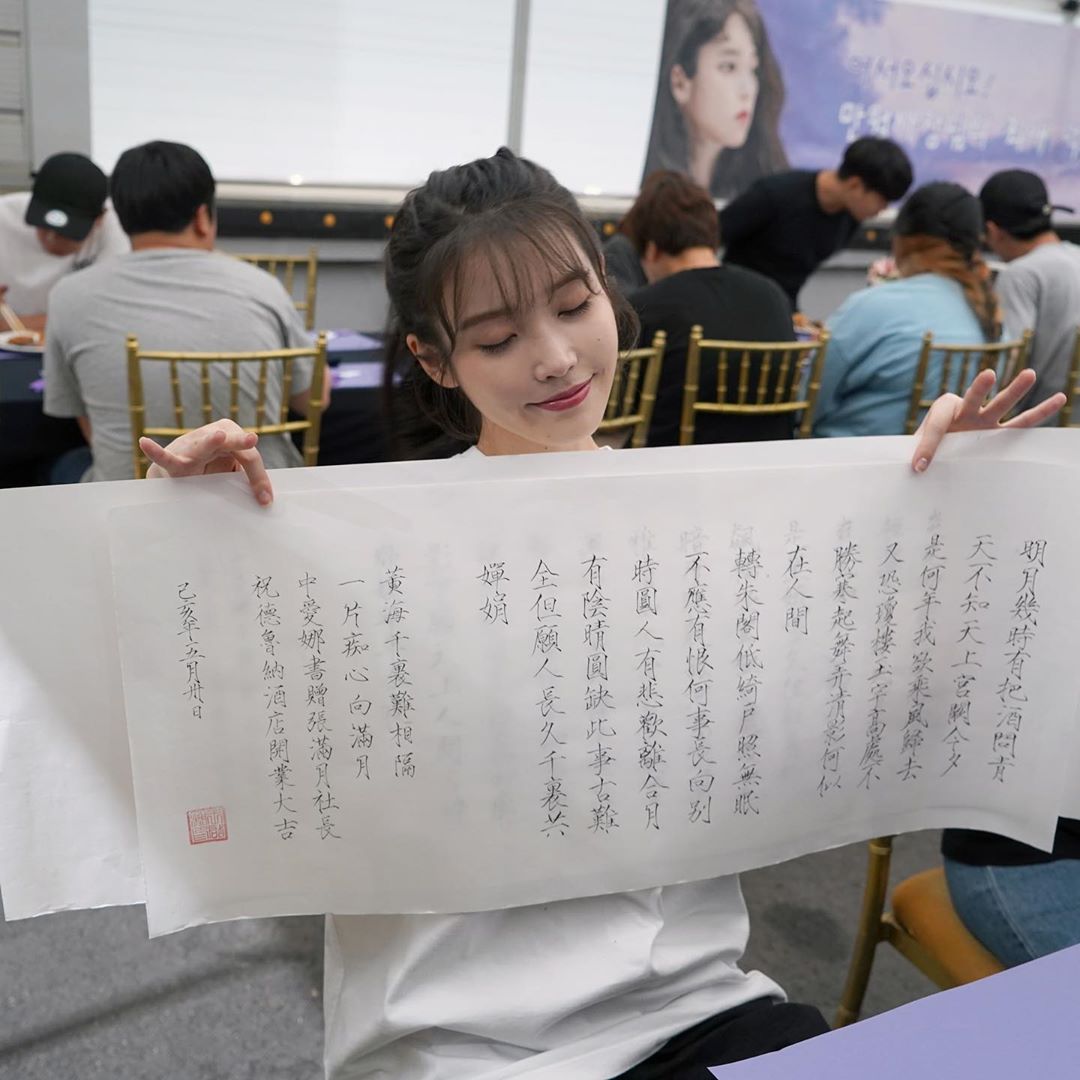 어서오십시오!
만월사장님
明月幾時有把酒問青
天不知天上宮闕今夕
是何年我欲乘風歸去
又恐瓊樓玉宇高處不
勝寒起舞弄清影何似
在人間
轉朱閣低綺戶照無眠
不應有恨何事長向別
時圓人有悲歡離合月
有陰晴圓缺此事古難
全但願人長久千裏共
嬋娟
黃海千裏難相隔
一片痴心向滿月
中愛娜書贈張滿月社長
祝德魯納酒店開業大吉
己亥年五月卅日